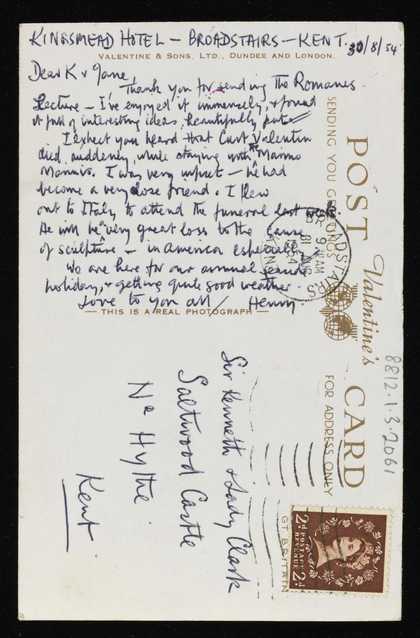 KINGSMEAD HOTEL – BROADSTAIRS – KENT. 30/8/54
VALENTINE & SONS, LTD., DUNDEE AND LONDON.
Dear K & Jane,
Thank you for sending the Romanes
Lecture – I've enjoyed it immensely, & found
it full of interesting ideas, beautifully put
I expect you heard that Curt Valentin
died, suddenly, while staying with Marino
Marini. I was very upset – he had
become a very close friend. I flew
out to Italy to attend the funeral last week.
He will be a very great loss to the cause
of sculpture – in America especially.
We are here for our annual seaside
holiday, & getting quite good weather.
Love to you all / Henry
— THIS IS A REAL PHOTOGRAPH —
SENDING YOU GREETINGS
POST CARD
Valentine's
FOR ADDRESS ONLY
BROADSTAIRS
KENT
31 AU
54
8812.1.3.2061
Sir Kenneth & Lady Clark
Saltwood Castle
Nr Hythe
Kent
GT. BRITAIN
2D POSTAGE REVENUE 2D